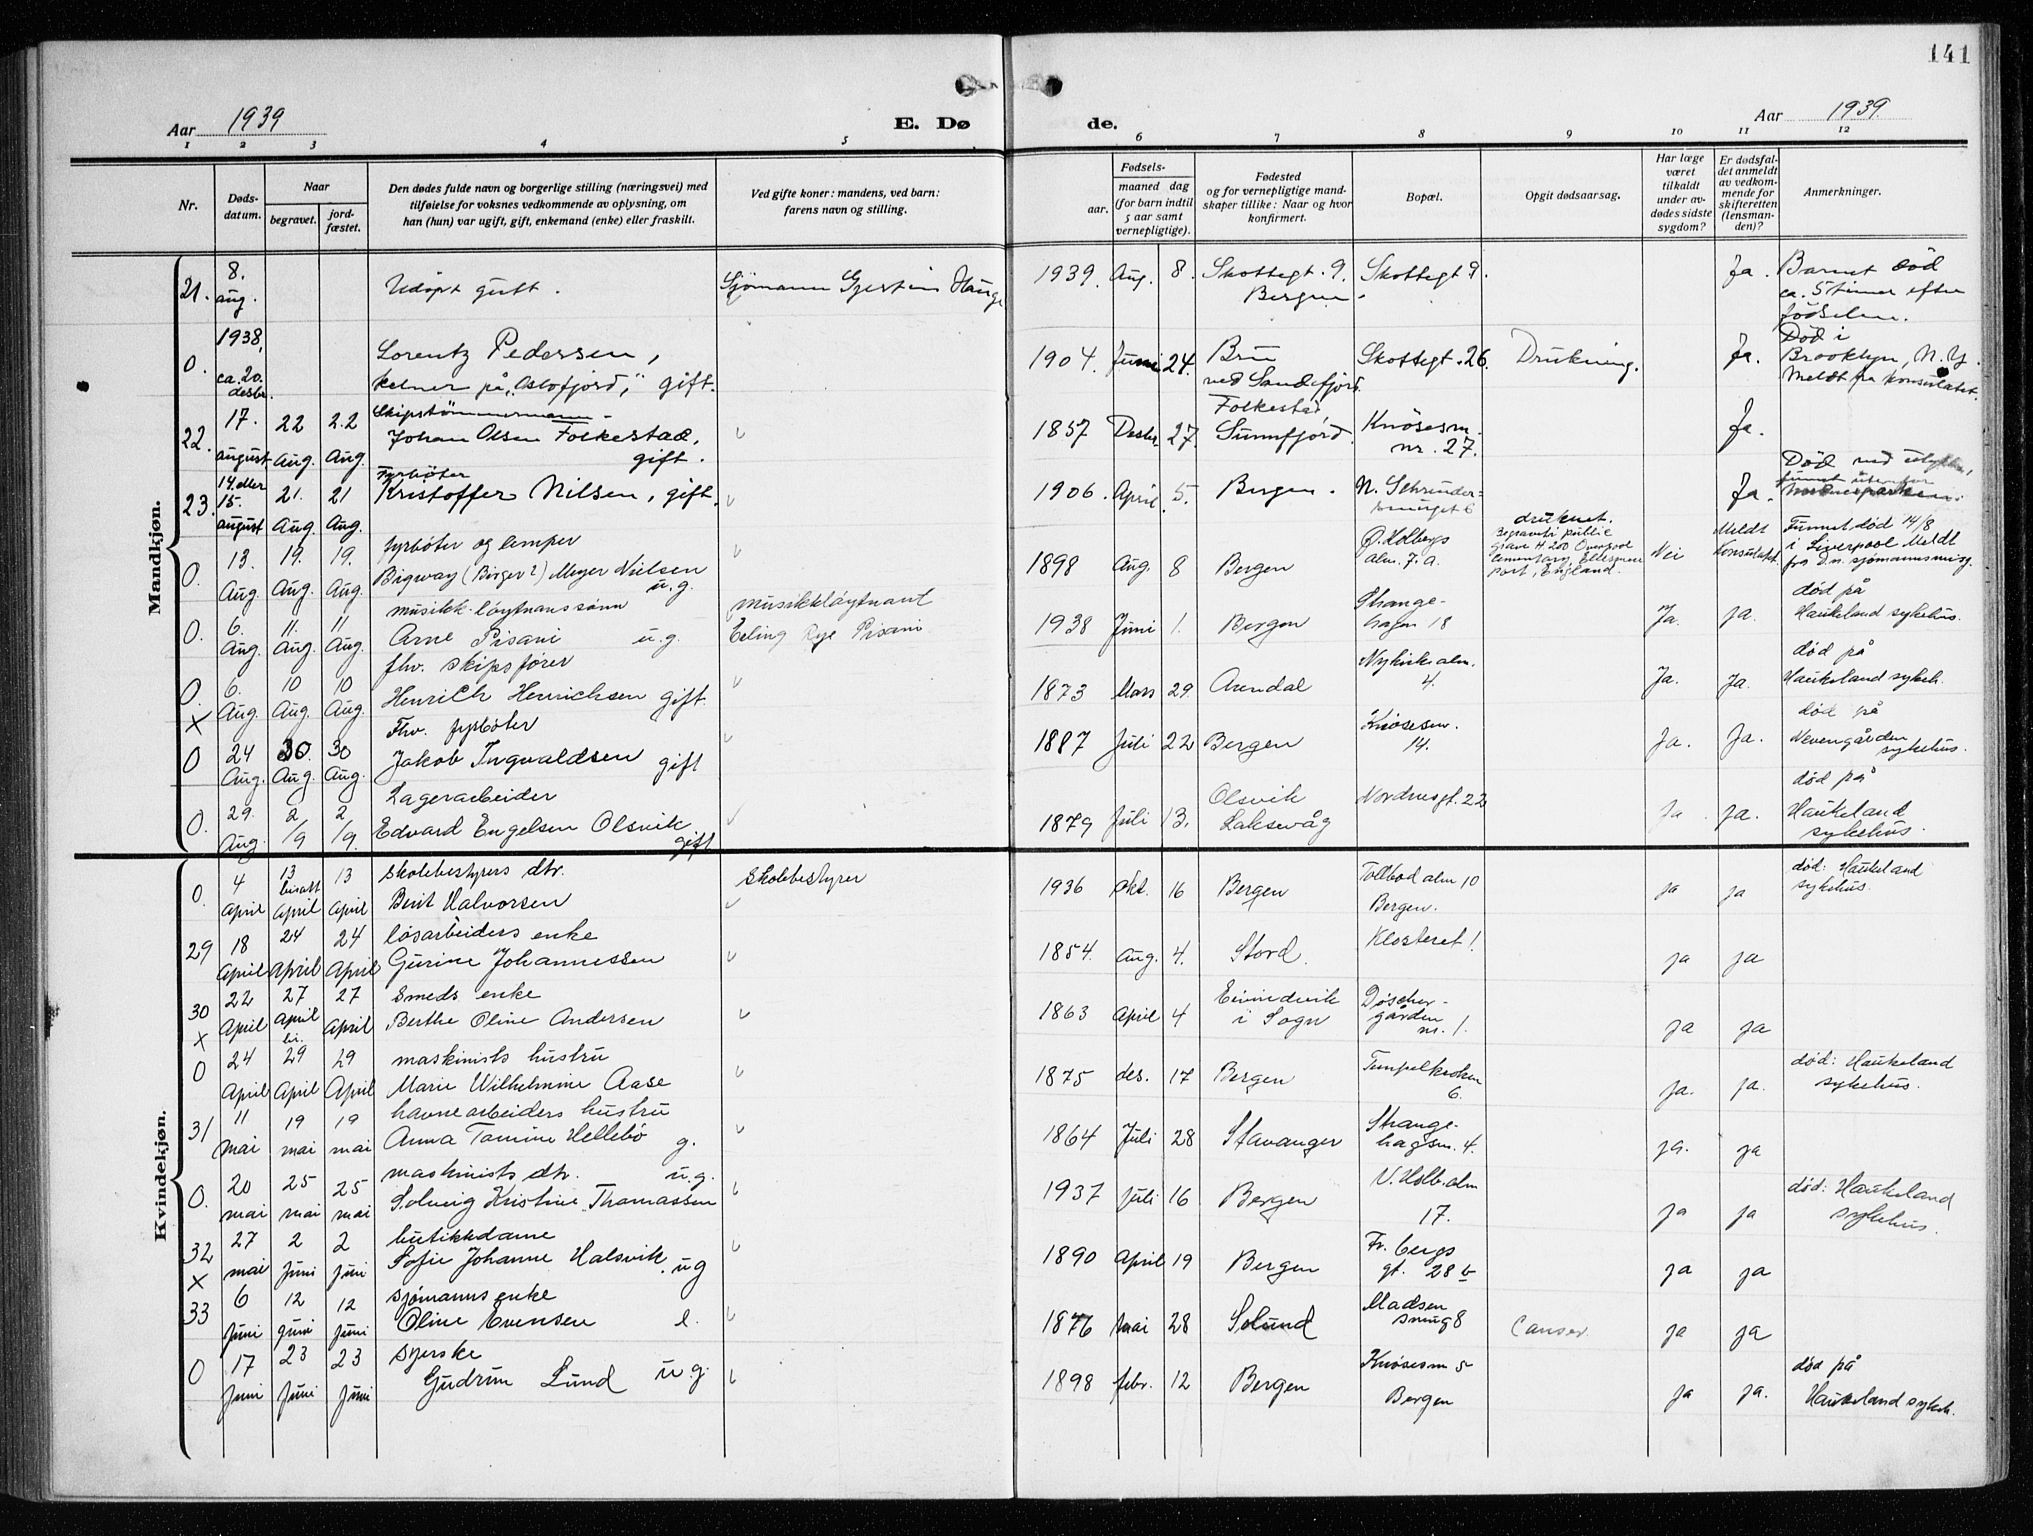 141
Aar 1939
E. Dø
de.
Aar 1939.
1 2 3 4 5 6 7 8 9 10 11 12
Nr.
Døds-
datum.
Naar
begravet.
jord-
fæstet.
Den dødes fulde navn og borgerlige stilling (næringsvei) med
tilføielse for voksnes vedkommende av oplysning, om
han (hun) var ugift, gift, enkemand (enke) eller fraskilt.
Ved gifte koner: mandens, ved barn:
farens navn og stilling.
Fødsels-
aar.
maaned dag
(for barn indtil
5 aar samt
vernepligtige).
Fødested
og for vernepligtige mand-
skaper tillike: Naar og hvor
konfirmert.
Bopæl.
Opgit dødsaarsag.
Har læge
været
tilkaldt
under av-
dødes sidste
sygdom?
Er dødsfal-
det anmeldt
av vedkom-
mende for
skifteretten
(lensman-
den)?
Anmerkninger.
Mandkjøn.
21. 8. aug. Udøpt gutt. Sjømann Gjertin Hauge 1939. Aug. 8. Skottegt. 9. Bergen. Skottegt 9. Ja. Barnet død
ca. 5 timer efter
fødselen.
0. 1938, ca. 20. desbr. Lorentz Pedersen,
kelner på „Oslofjord," gift. 1904. Juni 24. Bru
ved Sandefjord. Skottegt. 26. Drukning. Ja. Død i
Brooklyn, N.Y.
Meldt fra konsulatet.
22. 17. august 22 Aug. 22 Aug. Skipstømmermann
Johan Olsen Folkestad, gift. 1857 Desbr. 27. Folkestad,
Sunnfjord. Knøsesm.
nr. 27. Ja.
23. 14. eller 15. august 21. Aug. 21 Aug. Fyrbøter
Kristoffer Nilsen, gift. 1906. April 5. Bergen. Ja. Død ved
0. 13. Aug. 19. Aug. 19. Aug. fyrbøter og lemper
Bigway (Birger?) Meyer Nielsen u.g. 1898 Aug. 8 Bergen Ø. Holbergs
alm. 7.a. druknet.
Begravet i public
grave H 200 Overpool
cemetary, Ellesmere
port, England. Nei Meldt
Konsulatet. Funnet død 14/8
i Liverpool Meldt
fra D.n. sjømannsmisj.
0. 6. Aug. 11. Aug. 11 Aug. musikk-løytnanssønn
Arne Pisani u.g. musikkløytnant
Erling Rye Pisani 1938 Juni 1. Bergen Strange-
hagen 18 Ja. ja. død på
Haukeland sykehus.
0. X 6. Aug. 10 Aug. 10 Aug. fhv. skipsfører
Henrich Henrichsen gift. 1873 Mars 29. Arendal Nykirkealm.
4. Ja. Ja. død på
Haukeland sykeh.
0 24 Aug. 30. Aug. 30 Aug. Fhv. fyrbøter
Jakob Ingvaldsen gift 1887 Juli 22 Bergen Knøsesm.
14. Ja. Ja. død på
Nevengården
sykehus.
0. 29. Aug. 2/9 2/9. Lagerarbeider
Edvard Engelsen Olsvik gift 1879 Juli 13. Olsvik
Laksevåg Nordnesgt. 22 Ja ja. død på
Haukeland
sykehus.
Kvindekjøn.
0. 4 April 13 bisatt April 13 April skolebestyrers dtr.
Berit Halvorsen skolebestyrer 1936 okt. 16 Bergen Tollbod alm 10
Bergen. ja ja død: Haukeland
sykehus.
29 18 April 24 April 24 April løsarbeiders enke
Gurine Johannessen 1854. Aug. 4. Stord. Klosteret 1. ja ja
30 X 22 April 27 April bi. 27 April smeds enke
Berthe Oline Andersen 1863 April 4 Eivindvik
i Sogn Døscher-
gården
nr. 1. ja ja
0 24 April 29 April 29 April maskinists hustru
Marie Wilhelmine Aase 1875 des. 17 Bergen Tempelkroken
6. ja. ja. død: Haukeland
sykehus.
31 11 mai 19 mai 19 mai havnearbeiders hustru
Anna Tomine Hellebø g. 1864 Juli 28 Stavanger Strange-
hagsm. 4. ja. ja
0. 20 mai 25 mai 25 mai maskinists dtr. u.g.
Solveig Kristine Thomassen 1937 Juli 16 Bergen V. Holb. alm
17. ja ja død: Haukeland
sykehus.
32 X 27 mai 2 Juni 2 Juni butikkdame
Sofie Johanne Halsvik. ug 1890 April 19 Bergen Fr. Bergs
gt. 28 b ja ja
33 6 Juni 12 juni 12 Juni sjømanns enke
Oline Evensen e. 1876 mai 28 Solund Madsen
smug 8 Canser. ja ja
0 17 Juni 23 Juni 23 Juni syerske
Gudrun Lund u.g. 1898 febr. 12 Bergen Knøsesm 5
Bergen ja ja. død på
Haukeland sykeh.